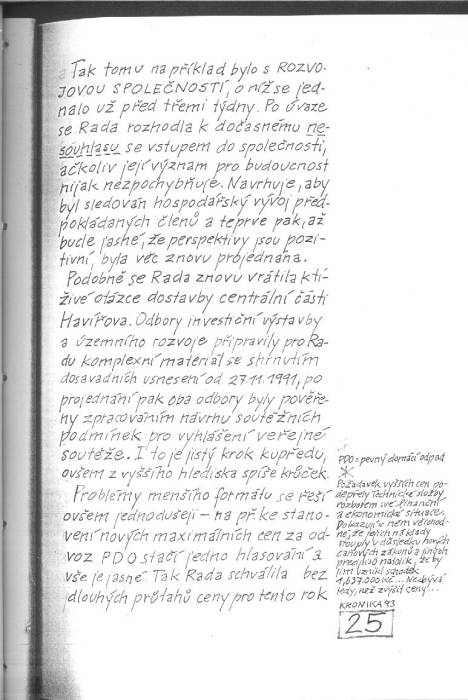 Tak tomu například bylo s ROZVO-
JOVOU SPOLEČNOSTÍ, o níž se jed-
nalo už před třemi týdny. Po úvaze
se Rada rozhodla k dočasnému ne-
souhlasu se vstupem do společnosti,
ačkoliv její význam pro budoucnost
nijak nezpochybňuje. Navrhuje, aby
byl sledován hospodářský vývoj před-
pokládaných členů a teprve pak, až
bude jasné, že perspektivy jsou pozi-
tivní, byla věc znovu projednána.
Podobně se Rada znovu vrátila k ti-
živé otázce dostavby centrální části
Havířova. Odbory investiční výstavby
a územního rozvoje připravily pro Ra-
du komplexní materiál se shrnutím
dosavadních usnesení od 27.11.1991, po
projednání pak oba odbory byly pověře-
ny zpracováním návrhu soutěžních
podmínek pro vyhlášení veřejné
soutěže. I to je jistý krok kupředu,
ovšem z vyššího hlediska spíše krůček.
Problémy menšího formátu se řeší
ovšem jednodušeji – na př. ke stano-
vení nových maximálních cen za od-
voz PDO stačí jedno hlasování a
vše je jasné. Tak Rada schválila bez
dlouhých průtahů ceny pro tento rok
PDO = pevný domácí odpad
*
Požadavek vyšších cen po-
depřely Technické služby
rozborem své finanční
a ekonomické situace.
Pokazují v něm věrohod-
ně, že jejich náklady
stouply v důsledku nových
daňových zákonů a jiných
předpisů natolik, že by
jim vznikl schodek
1,637.000 Kč... Nezbývá
tedy, než zvýšit ceny...
KRONIKA 93
25